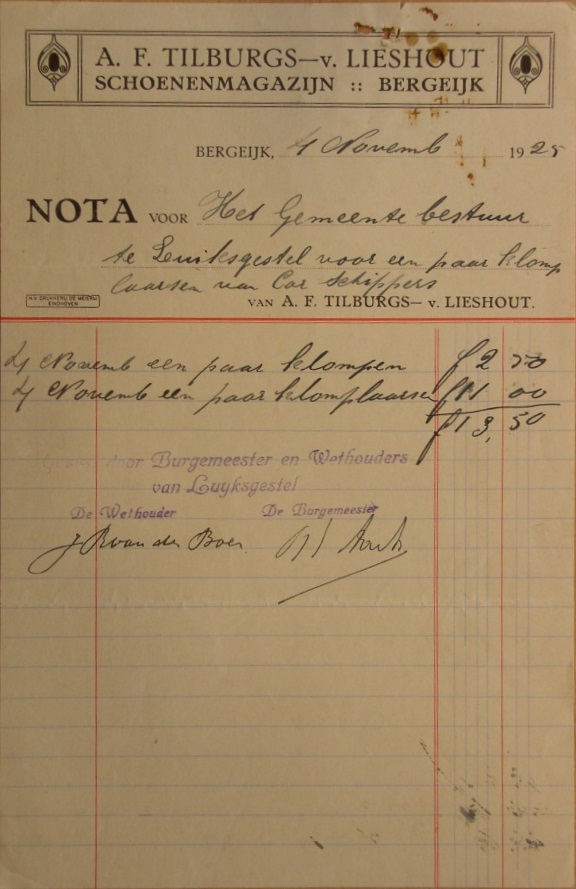 A. F. TILBURGS—v. LIESHOUT
SCHOENENMAGAZIJN :: BERGEIJK
BERGEIJK, 4 Novemb 1925
NOTA VOOR Het Gemeente bestuur
te Luiksgestel voor een paar klomp
laarsen van Cor Schippers
N.V. DRUKKERIJ DE MEIERIJ
EINDHOVEN
VAN A. F. TILBURGS— v. LIESHOUT.
4 Novemb een paar klompen f 2 50
4 Novemb een paar klomplaarsen f 11 00
f 13,50
door Burgemeester en Wethouders
van Luyksgestel
De Wethouder De Burgemeester
van der Boer